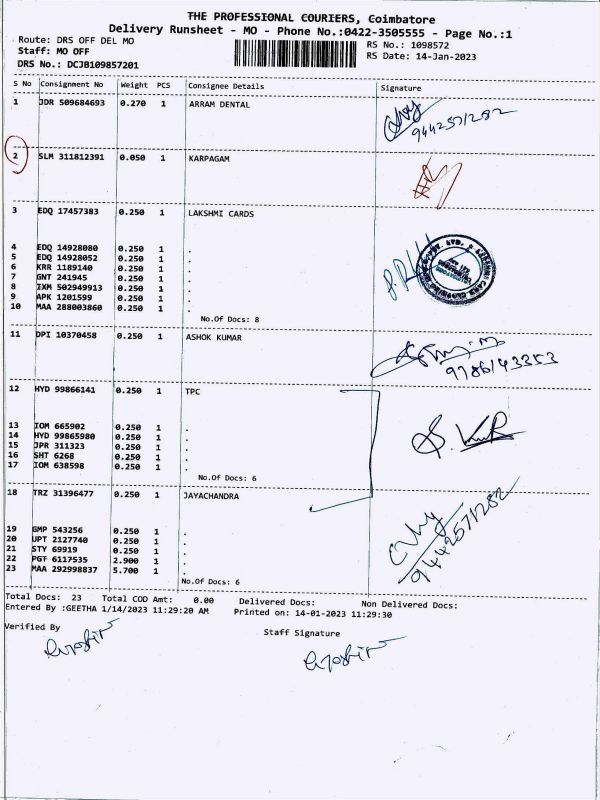 THE PROFESSIONAL COURIERS, Coimbatore
Delivery Runsheet - MO - Phone No.:0422-3505555 - Page No.:1
Route: DRS OFF DEL MO
RS No.: 1098572
Staff: MO OFF
RS Date: 14-Jan-2023
DRS No.: DCJB109857201
S No Consignment No Weight PCS Consignee Details Signature
1 JDR 509684693 0.270 1 ARRAM DENTAL
9442571282
2 SLM 311812391 0.050 1 KARPAGAM
3 EDQ 17457383 0.250 1 LAKSHMI CARDS
4 EDQ 14928080 0.250 1 .
5 EDQ 14928052 0.250 1 .
6 KRR 1189140 0.250 1 .
7 GNT 241945 0.250 1 .
8 IXM 502949913 0.250 1 .
9 APK 1201599 0.250 1 .
10 MAA 288003860 0.250 1 .
No.Of Docs: 8
11 DPI 10370458 0.250 1 ASHOK KUMAR
9786143353
12 HYD 99866141 0.250 1 TPC
13 IOM 665902 0.250 1 .
14 HYD 99865980 0.250 1 .
15 JPR 311323 0.250 1 .
16 SHT 6268 0.250 1 .
17 IOM 638598 0.250 1 .
No.Of Docs: 6
18 TRZ 31396477 0.250 1 JAYACHANDRA
19 GMP 543256 0.250 1 .
20 UPT 2127740 0.250 1 .
21 STY 69919 0.250 1 .
22 PGT 6117535 2.900 1 .
23 MAA 292998837 5.700 1 .
9442571282
No.Of Docs: 6
Total Docs: 23 Total COD Amt: 0.00 Delivered Docs: Non Delivered Docs:
Entered By :GEETHA 1/14/2023 11:29:20 AM Printed on: 14-01-2023 11:29:30
Verified By
Staff Signature